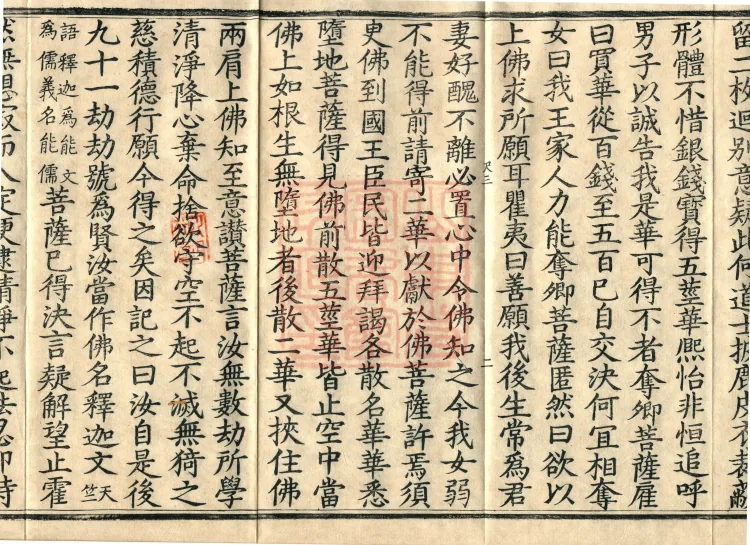 留二枚迴別意疑此何道士披鹿皮衣裁蔽
形體不惜銀錢寶得五莖華熈怡非恒追呼
男子以誠告我是華可得不者奪卿菩薩雇
曰買華從百錢至五百已自交決何冝相奪
女曰我王家人力能奪卿菩薩匿然曰欲以
上佛求所願耳瞿夷曰善願我後生常爲君
尺三 二
妻好醜不離必置心中令佛知之今我女弱
不能得前請寄二華以獻於佛菩薩許焉須
臾佛到國王臣民皆迎拜謁各散名華華悉
墮地菩薩得見佛前散五莖華皆止空中當
佛上如根生無墮地者後散二華又挾住佛
兩肩上佛知至意讃菩薩言汝無數劫所學
清淨降心棄命捨欲守空不起不滅無猗之
慈積德行願今得之矣因記之曰汝自是後
九十一劫劫號爲賢汝當作佛名釋迦文天竺
語釋迦爲能文爲儒義名能儒菩薩已得決言疑解望止霍
然無想寂而入定便逮清淨不起法忍即時